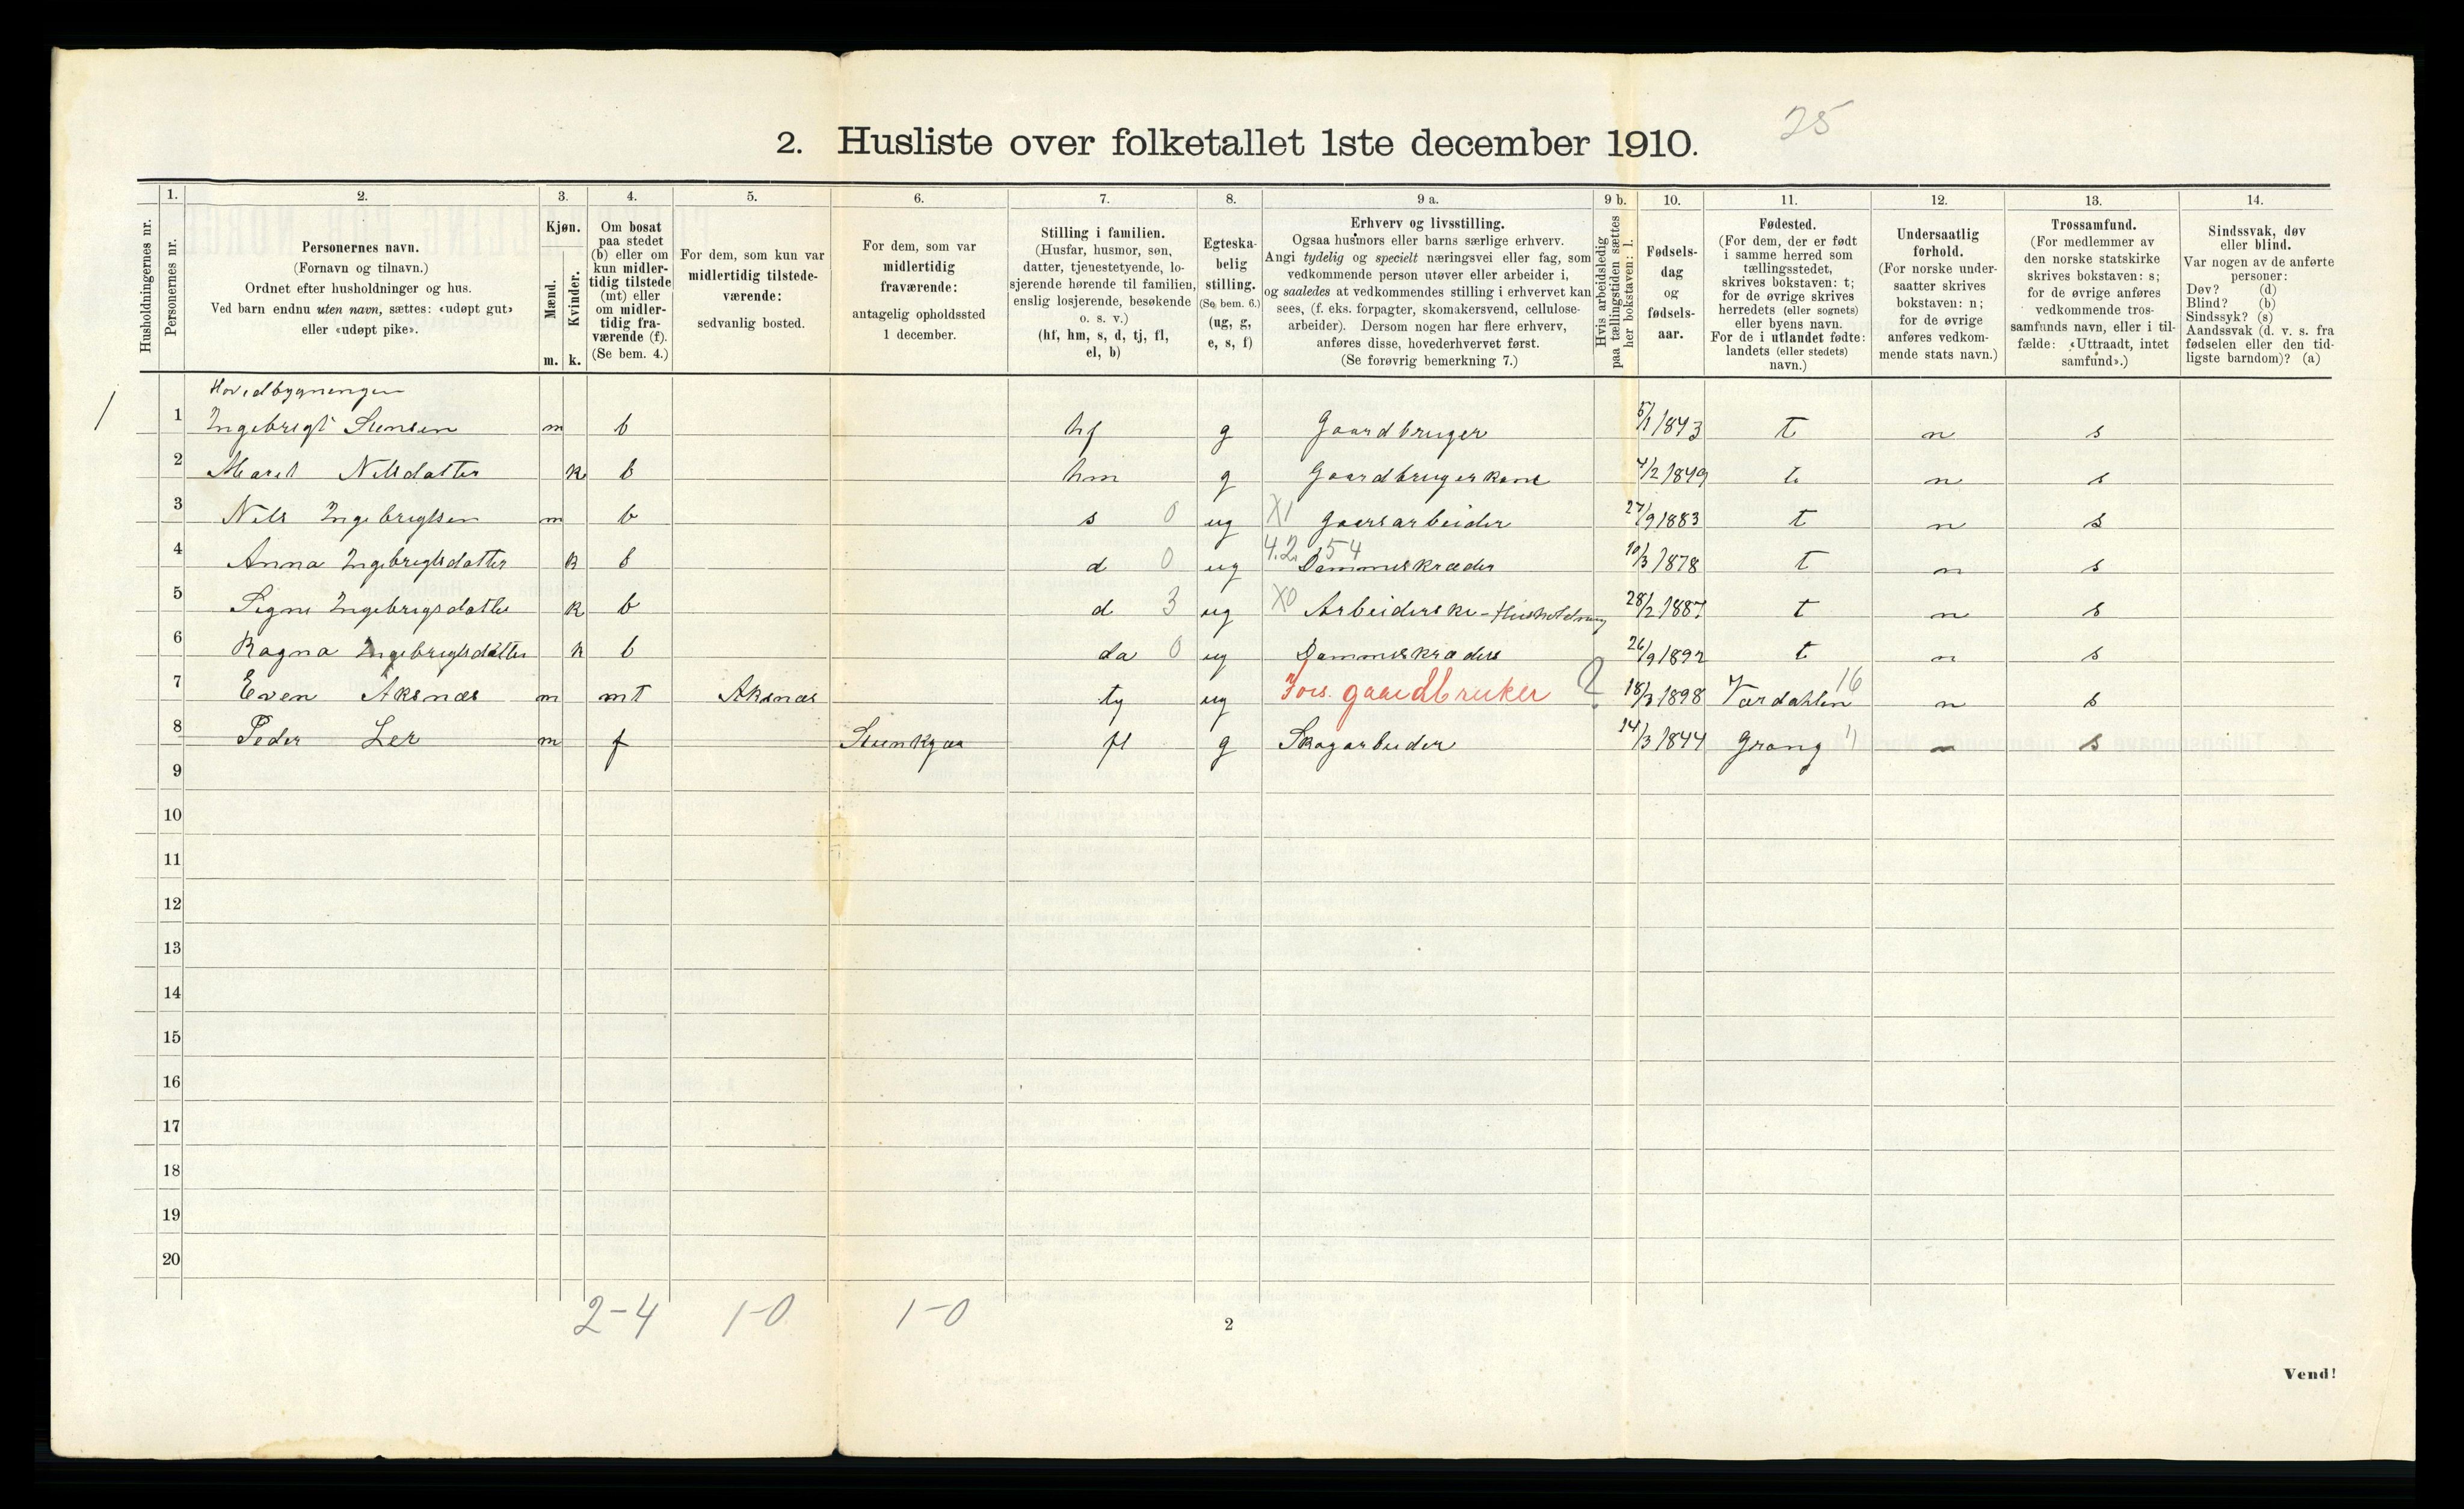 25
2. Husliste over folketallet 1ste december 1910.
Husholdningernes nr.
1.
Personernes nr.
2.
Personernes navn.
(Fornavn og tilnavn.)
Ordnet efter husholdninger og hus.
Ved barn endnu uten navn, sættes: «udøpt gut»
eller «udøpt pike».
3.
Kjøn.
Mænd.
Kvinder.
m. k.
4.
Om bosat
paa stedet
(b) eller om
kun midler-
tidig tilstede
(mt) eller
om midler-
tidig fra-
værende (f).
(Se bem. 4.)
5.
For dem, som kun var
midlertidig tilstede-
værende:
sedvanlig bosted.
6.
For dem, som var
midlertidig
fraværende:
antagelig opholdssted
1 december.
7.
Stilling i familien.
(Husfar, husmor, søn,
datter, tjenestetyende, lo-
sjerende hørende til familien,
enslig losjerende, besøkende
o. s. v.)
(hf, hm, s, d, tj, fl,
el, b)
8.
Egteska-
belig
stilling.
(Se bem. 6.)
(ug, g,
e, s, f)
9 a.
Erhverv og livsstilling.
Ogsaa husmors eller barns særlige erhverv.
Angi tydelig og specielt næringsvei eller fag, som
vedkommende person utøver eller arbeider i,
og saaledes at vedkommendes stilling i erhvervet kan
sees, (f. eks. forpagter, skomakersvend, cellulose-
arbeider). Dersom nogen har flere erhverv,
anføres disse, hovederhvervet først.
(Se forøvrig bemerkning 7.)
9 b.
Hvis arbeidsledig
paa tællingstiden sættes
her bokstaven: l.
10.
Fødsels-
dag
og
fødsels-
aar.
11.
Fødested.
(For dem, der er født
i samme herred som
tællingsstedet,
skrives bokstaven: t;
for de øvrige skrives
herredets (eller sognets)
eller byens navn.
For de i utlandet fødte:
landets (eller stedets)
navn.)
12.
Undersaatlig
forhold.
(For norske under-
saatter skrives
bokstaven: n;
for de øvrige
anføres vedkom-
mende stats navn.)
13.
Trossamfund.
(For medlemmer av
den norske statskirke
skrives bokstaven: s;
for de øvrige anføres
vedkommende tros-
samfunds navn, eller i til-
fælde: «Uttraadt, intet
samfund».)
14.
Sindssvak, døv
eller blind.
Var nogen av de anførte
personer:
Døv? (d)
Blind? (b)
Sindssyk? (s)
Aandssvak (d. v. s. fra
fødselen eller den tid-
ligste barndom)? (a)
Hovedbygningen
1 Ingebrigt Stensen m b hf g Gaardbruger 5/1 1843 t n s
2 Maret Nilsdatter k b hm g Gaardbrugerkone 7/2 1849 t n s
3 Nils Ingebrigtsen m b s 0 ug X1 gaarsarbeider 27/9 1883 t n s
4 Anna Ingebrigtsdatter k b d 0 ug 4.2. 54 Dammeskræder 10/3 1878 t n s
5 Signe Ingebrigtsdatter k b d 3 ug X0 Arbeiderske - Husholdning 28/2 1887 t n s
6 Ragna Ingebrigtsdatter k b da 0 ug Dammeskræders 26/9 1892 t n s
7 Even Aksnæs m mt Aksnæs ty ug Fors. gaardbruker ? 18/3 1898 Værdahlen 16 n s
8 Peder Ler m f Stenkjær fl g Skogarbeider 14/3 1844 Grong n s
9
10
11
12
13
14
15
16
17
18
19
20
2-4 1-0 1-0
2
Vend!